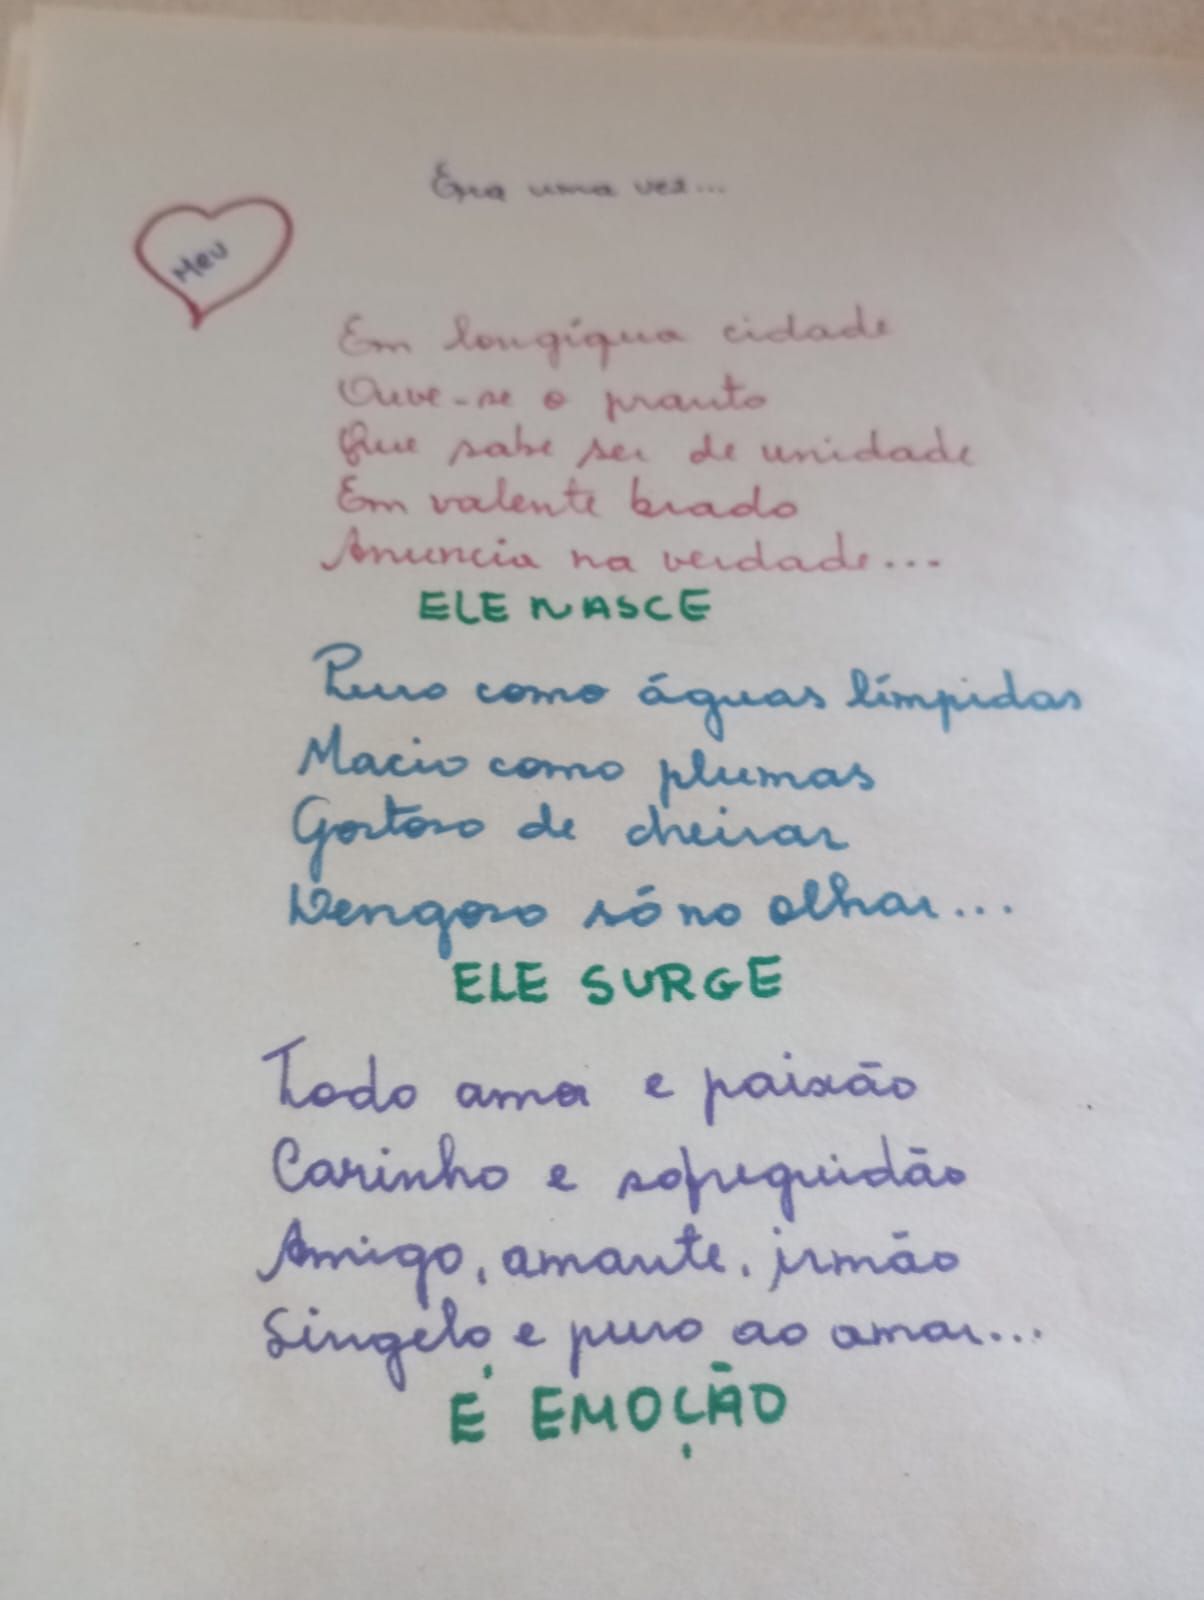 Era uma vez...
Meu
Em longíqua cidade
Ouve-se o pranto
Que sabe ser de unidade
Em valente brado
Anuncia na verdade...
ELE NASCE
Puro como águas límpidas
Macio como plumas
Gostoso de cheirar
Dengoso só no olhar...
ELE SURGE
Todo amor e paixão
Carinho e sofreguidão
Amigo, amante, irmão
Singelo e puro ao amar...
É EMOÇÃO